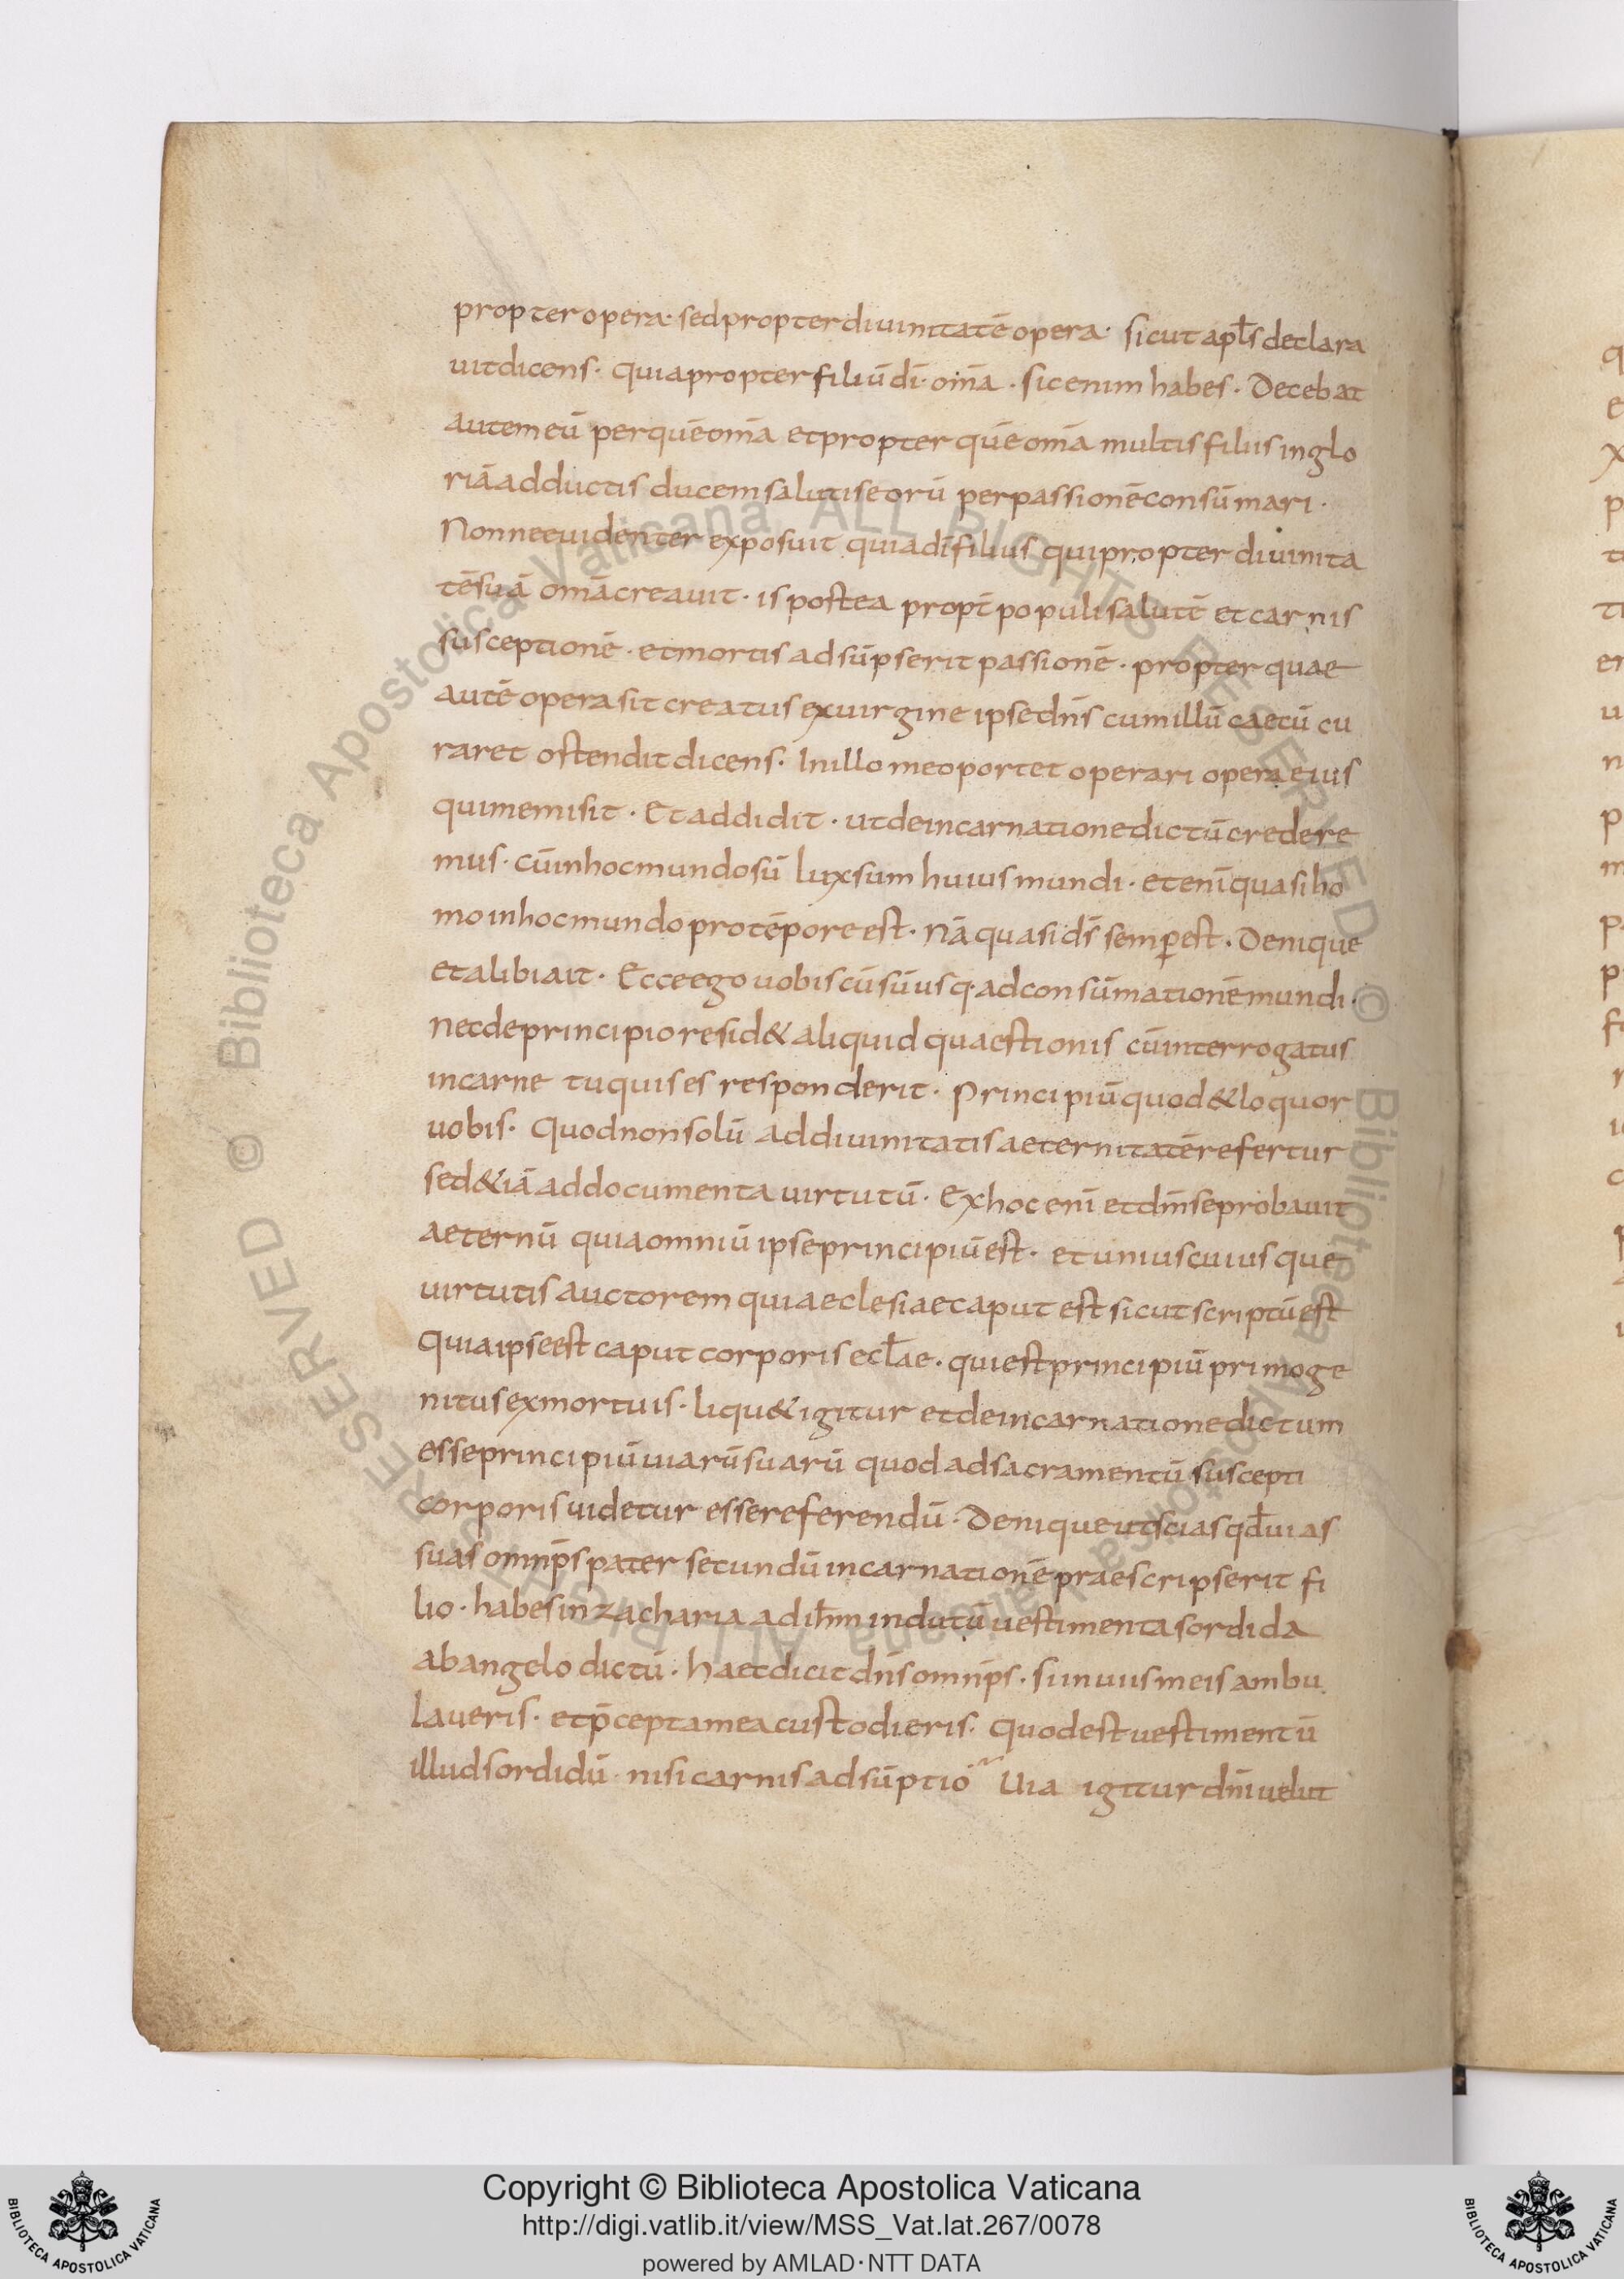 propter opera· sed propter diuinitatē opera· sicut apl̄s declara
uit dicens· quia propter filiū dī· om̄a · sic enim habes · Decebat
autem eū per quē om̄a et propter quē om̄a multis filiis in glo
riā adductis ducem salutis eorū per passionē consūmari ·
Nonne euidenter exposuit quia dī filius qui propter diuinita
tē suā om̄a creauit · is postea propt̄ populi salutē et carnis
susceptionē · et mortis adsūpserit passionē · propter quae
autē opera sit creatus ex uirgine ipse dn̄s cum illū caecū cu
raret ostendit dicens · In illo me oportet operari opera eius
qui me misit · Et addidit · ut de incarnatione dictū credere
mus · cū in hoc mundo sū lux sum huius mundi · et enī quasi ho
mo in hoc mundo pro tēpore est · nā quasi ds̄ semꝑ est · Denique
et alibi ait · Ecce ego uobiscū sū usq· ad consūmationē mundi ·
nec de principio resid& aliquid quaestionis cū interrogatus
in carne tu quis es responderit · Principiū quod & loquor
uobis · Quod non solū ad diuinitatis aeternitatē refertur
sed &iā ad documenta uirtutū · Ex hoc enī et dm̄ se probauit
aeternū quia omniū ipse principiū est · et uniuscuiusque
uirtutis auctorem quia eclesiae caput est sicut scriptū est
Quia ipse est caput corporis ecl̄ae · qui est principiū primoge
nitus ex mortuis · liqu& igitur et de incarnatione dictum
esse principiū uiarū suarū quod ad sacramentū suscepti
corporis uidetur esse referendū · Denique ut scias qd̄ uias
suas omnip̄s pater secundū incarnationē praescripserit fi
lio · habes in zacharia ad ih̄m indutū uestimenta sordida
ab angelo dictū · haec dicit dn̄s omnip̄s · si in uiis meis ambu
laueris · et p̄cepta mea custodieris · Quod est uestimentū
illud sordidū · nisi carnis adsūptio Uia igitur dn̄i uelut
Copyright © Biblioteca Apostolica Vaticana
http://digi.vatlib.it/view/MSS_Vat.lat.267/0078
powered by AMLAD·NTT DATA
BIBLIOTECA APOSTOLICA VATICANA
BIBLIOTECA APOSTOLICA VATICANA